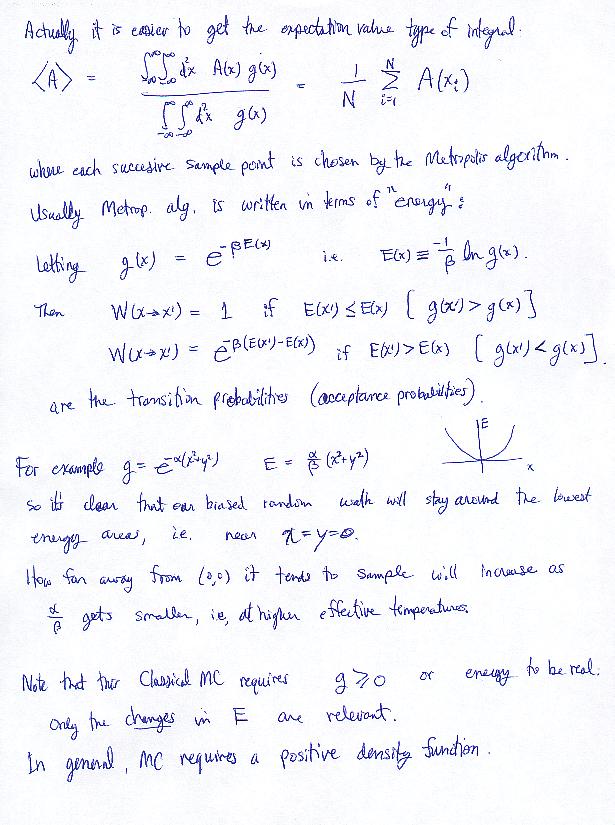 Actually it is easier to get the expectation value type of integral.
⟨A⟩ = ∫_{-∞}^{∞}∫_{-∞}^{∞} d²x A(x) g(x) / ∫_{-∞}^{∞}∫_{-∞}^{∞} d²x g(x) = 1/N Σ_{i=1}^{N} A(x_i)
where each succesive sample point is chosen by the Metropolis algorithm.
Usually Metrop. alg. is written in terms of "energy":
Letting g(x) = e^{-βE(x)} i.e. E(x) ≡ -1/β ln g(x).
Then W(x→x') = 1 if E(x') ≤ E(x) [ g(x') > g(x) ]
W(x→x') = e^{-β(E(x')-E(x))} if E(x') > E(x) [ g(x') < g(x) ].
are the transition probabilities (acceptance probabilities).
E
x
For example g = e^{-α(x²+y²)} E = α/β (x²+y²)
so it's clear that our biased random walk will stay around the lowest
energy areas, i.e. near x=y=0.
How far away from (0,0) it tends to sample will increase as
α/β gets smaller, ie, at higher effective temperatures.
Note that this Classical MC requires g ≥ 0 or energy to be real.
Only the changes in E are relevant.
In general, MC requires a positive density function.